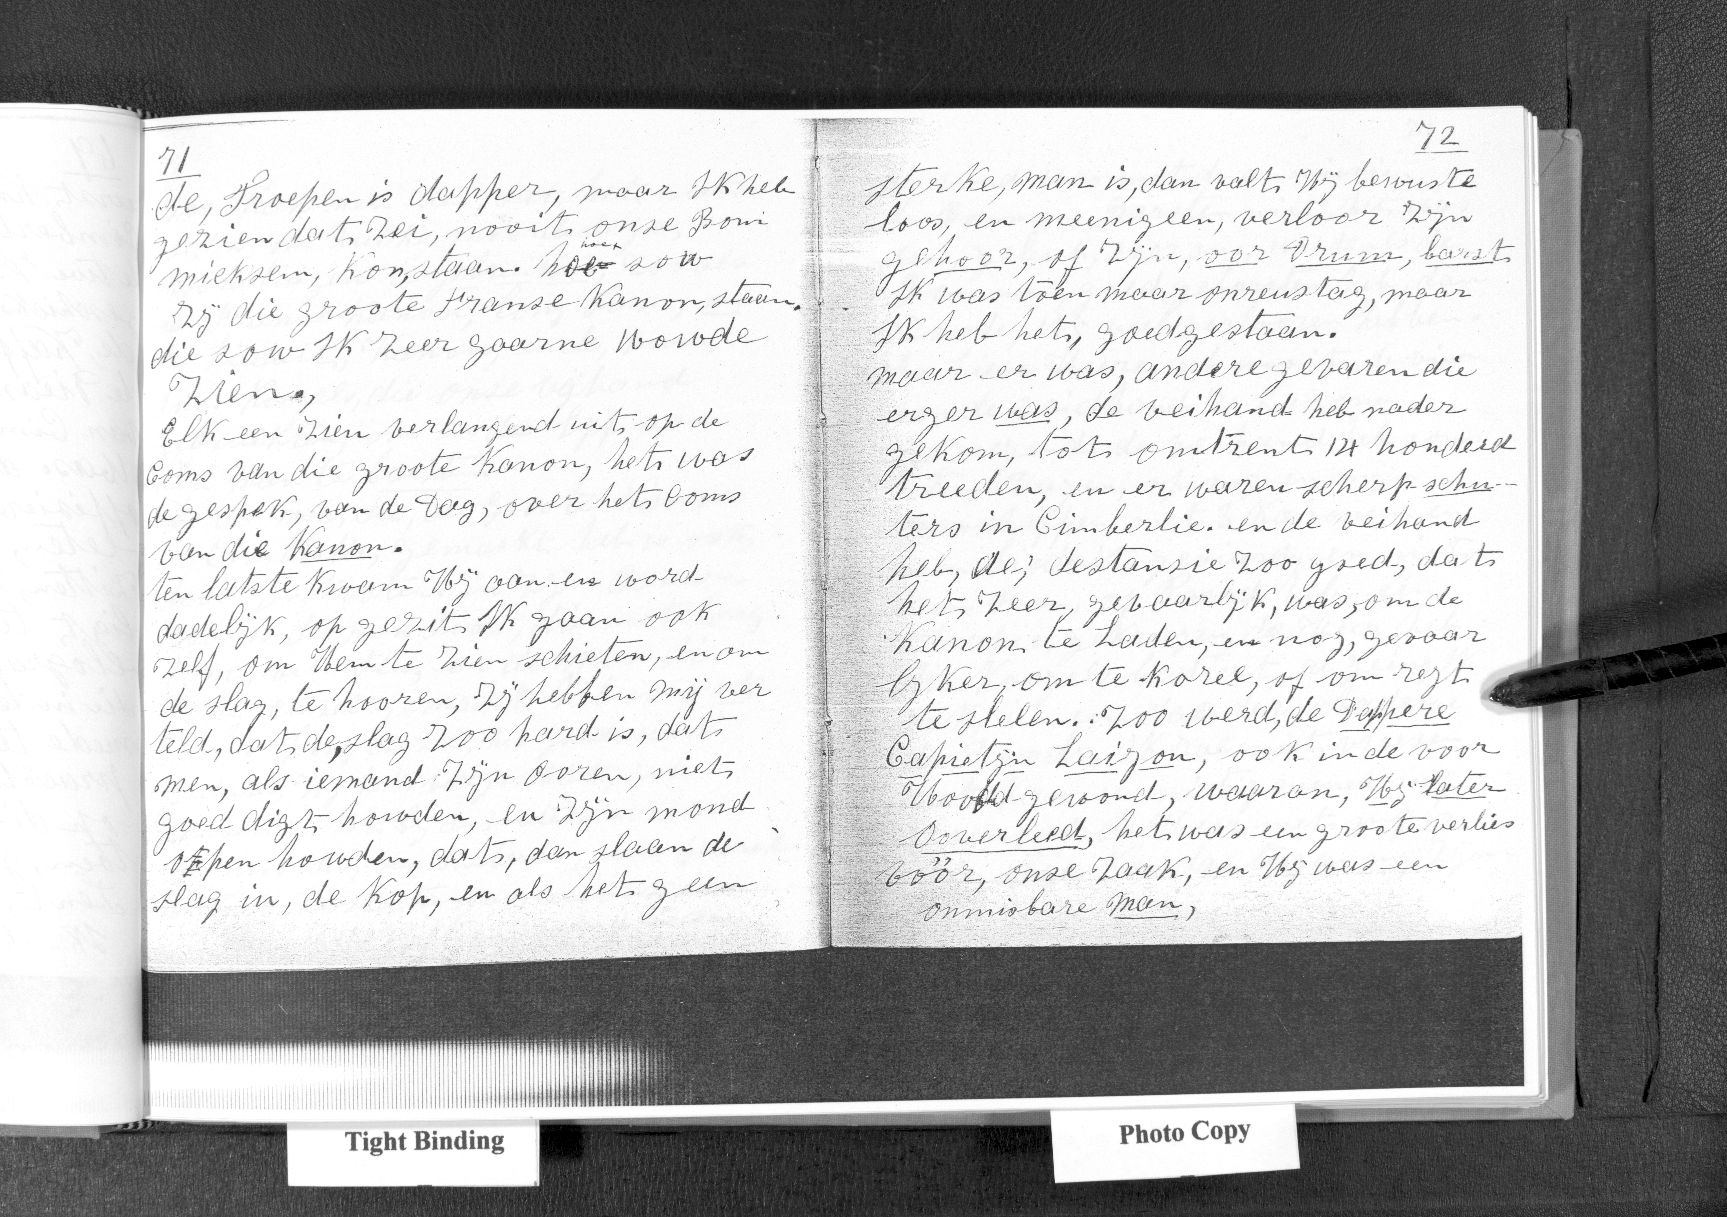 71
de, Troepen is dapper, maar Ik heb
gezien dat, Zei, nooit, onse Bom
mieksem, Kon, staan. hoe sow
Zij die groote Franse Kanon, staan.
die sow Ik Zeer gaarne wowde
Zien.,
Elk een Zien verlangend uit, op de
Coms van die groote Kanon, het, was
de gesprek, van de Dag, over het, Coms
van die Kanon.
ten latste Kwam Hij aan en word
dadelijk, op gezit, Ik gaan ook
Zelf, om Hem te Zien schieten, en om
de slag, te hooren, Zij hebben Mij ver
teld, dat, de, slag Zoo hard is, dat,
men, als iemand Zijn Ooren, niet,
goed digt, howden, en Zijn mond
open howden, dat, dan slaan de
slag in, de Kop, en als het, geen
72
sterke, man is, dan valt, Hij bewuste
loos, en meenigeen, verloor Zijn
gehoor, of Zijn, oor Drum, barst,
Ik was toen maar onreustag, maar
Ik heb het, goed gestaan.
maar er was, andere gevaren die
erger was, de veihand heb nader
gekom, tot, omtrent, 14 honderd
treeden, en er waren scherp schu-
ters in Cimberlie. en de veihand
heb, de, destansie Zoo goed, dat,
het, Zeer, gevaarlijk, was, om de
Kanon, te Laden, en nog, gevaar
lyker, om te Korel, of om regt,
te stelen. Zoo werd, de Dappere
Capietijn Laizon, ook in de voor
Hoofd gewond, waaran, Hij later
Ooverleed, het, was een groote verlies
vöör, onse Zaak, en Hij was een
onmisbare Man,
Tight Binding
Photo Copy